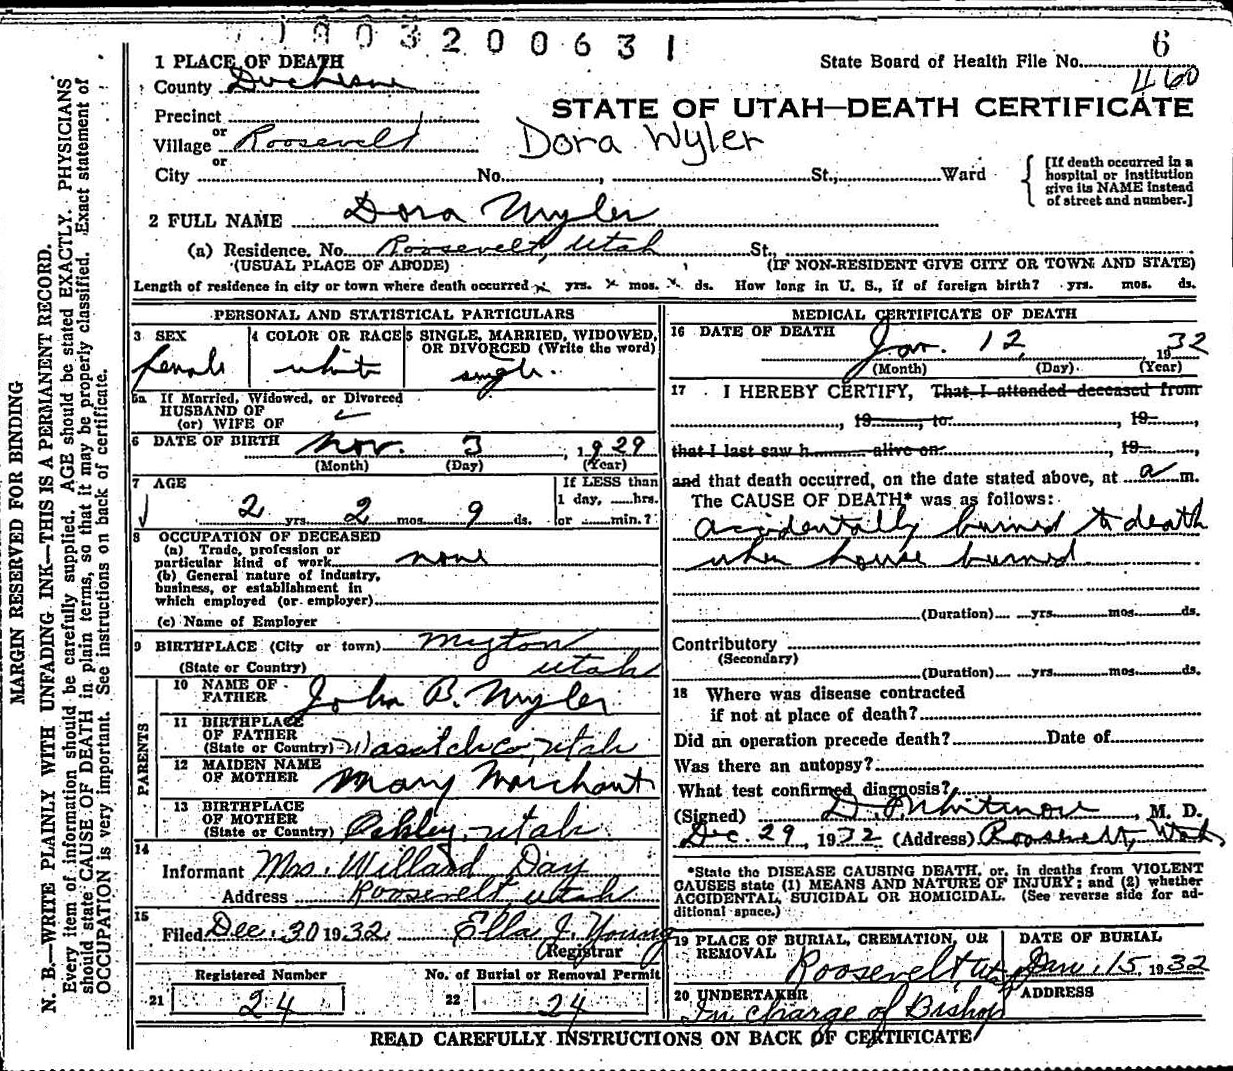 1003200631
6
1 PLACE OF DEATH
State Board of Health File No.
460
County Duchesne
STATE OF UTAH—DEATH CERTIFICATE
Precinct
or
Village Roosevelt
Dora Wyler
or
City No. , St., Ward
[If death occurred in a
hospital or institution
give its NAME instead
of street and number.]
2 FULL NAME Dora Myler
(a) Residence. No. Roosevelt, Utah St.,
(USUAL PLACE OF ABODE) (IF NON-RESIDENT GIVE CITY OR TOWN AND STATE)
Length of residence in city or town where death occurred x yrs. x mos. x ds. How long in U. S., if of foreign birth? yrs. mos. ds.
PERSONAL AND STATISTICAL PARTICULARS
3 SEX
female
4 COLOR OR RACE
white
5 SINGLE, MARRIED, WIDOWED,
OR DIVORCED (Write the word)
single.
5a If Married, Widowed, or Divorced
HUSBAND OF
(or) WIFE OF
6 DATE OF BIRTH Nov. 3, 1929
(Month) (Day) (Year)
7 AGE
2 yrs. 2 mos. 9 ds.
If LESS than
1 day, hrs.
or min.?
8 OCCUPATION OF DECEASED
(a) Trade, profession or
particular kind of work none
(b) General nature of industry,
business, or establishment in
which employed (or employer)
(c) Name of Employer
9 BIRTHPLACE (City or town) Myton
(State or Country) Utah
PARENTS
10 NAME OF
FATHER John B. Myler
11 BIRTHPLACE
OF FATHER
(State or Country) Wasatch co, Utah
12 MAIDEN NAME
OF MOTHER Mary Merchant
13 BIRTHPLACE
OF MOTHER
(State or Country) Oakley, Utah
14
Informant Mrs. Willard Day
Address Roosevelt, Utah
15
Filed Dec. 30 1932. Ella J. Young
Registrar
Registered Number
21 24
No. of Burial or Removal Permit
22 24
MEDICAL CERTIFICATE OF DEATH
16 DATE OF DEATH
Jan. 12, 1932
(Month) (Day) (Year)
17 I HEREBY CERTIFY, That I attended deceased from
, 19 , to , 19 ,
that I last saw h alive on , 19 ,
and that death occurred, on the date stated above, at a m.
The CAUSE OF DEATH* was as follows:
accidentally burned to death
when house burned
(Duration) yrs. mos. ds.
Contributory
(Secondary)
(Duration) yrs. mos. ds.
18 Where was disease contracted
if not at place of death?
Did an operation precede death? Date of
Was there an autopsy?
What test confirmed diagnosis?
(Signed) , M. D.
Dec. 29, 1932 (Address) Roosevelt, Utah
*State the DISEASE CAUSING DEATH, or, in deaths from VIOLENT
CAUSES state (1) MEANS AND NATURE OF INJURY; and (2) whether
ACCIDENTAL, SUICIDAL OR HOMICIDAL. (See reverse side for ad-
ditional space.)
19 PLACE OF BURIAL, CREMATION, OR
REMOVAL
Roosevelt, Ut
DATE OF BURIAL
Jan. 15, 1932
20 UNDERTAKER
In charge of Bishop
ADDRESS
READ CAREFULLY INSTRUCTIONS ON BACK OF CERTIFICATE
MARGIN RESERVED FOR BINDING
N. B.—WRITE PLAINLY WITH UNFADING INK—THIS IS A PERMANENT RECORD.
Every item of information should be carefully supplied. AGE should be stated EXACTLY. PHYSICIANS
should state CAUSE OF DEATH in plain terms, so that it may be properly classified. Exact statement of
OCCUPATION is very important. See instructions on back of certificate.